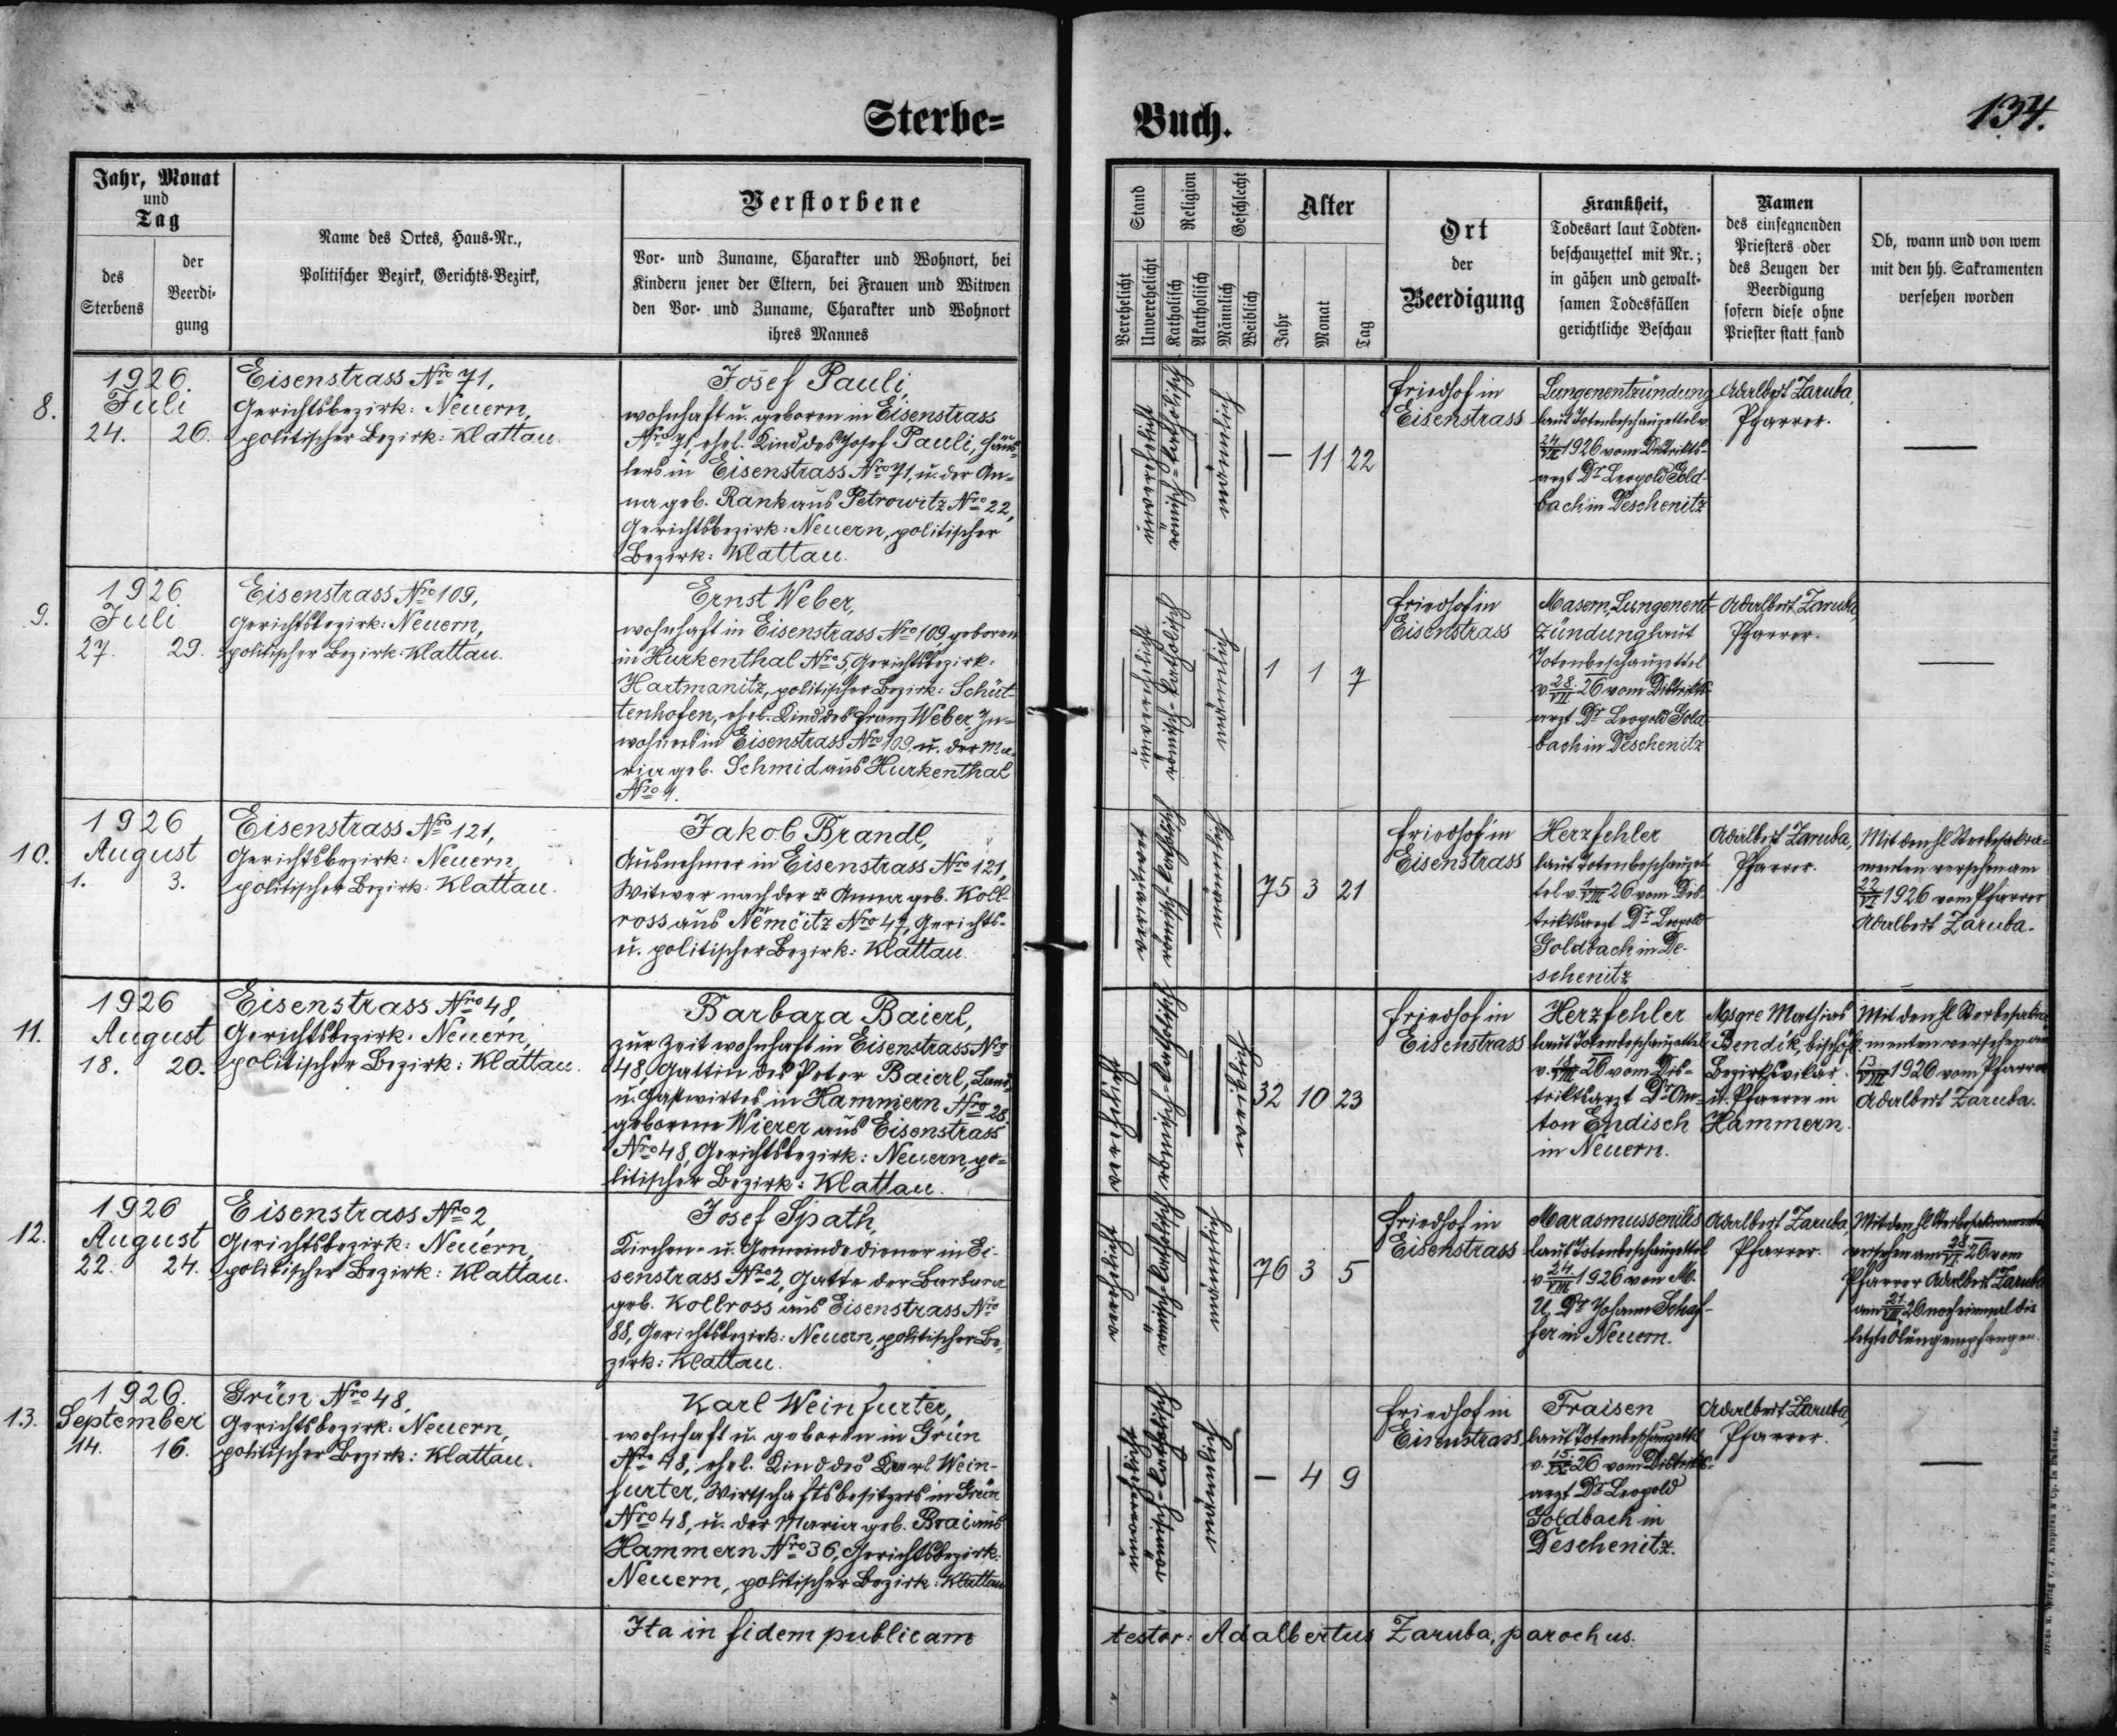 Sterbe=
Buch.
134.
Jahr, Monat
und
Tag
des
Sterbens
der
Beerdi-
gung
Name des Ortes, Haus-Nr.,
Politischer Bezirk, Gerichts-Bezirk,
Verstorbene
Vor- und Zuname, Charakter und Wohnort, bei
Kindern jener der Eltern, bei Frauen und Witwen
den Vor- und Zuname, Charakter und Wohnort
ihres Mannes
Stand
Verehelicht
Unverehelicht
Religion
Katholisch
Akatholisch
Geschlecht
Männlich
Weiblich
Alter
Jahr
Monat
Tag
Ort
der
Beerdigung
Krankheit,
Todesart laut Todten-
beschauzettel mit Nr.;
in gähen und gewalt-
samen Todesfällen
gerichtliche Beschau
Namen
des einsegnenden
Priesters oder
des Zeugen der
Beerdigung
sofern diese ohne
Priester statt fand
Ob, wann und von wem
mit den hh. Sakramenten
versehen worden
8.
1926.
Juli
24. 26.
Eisenstrass Nro 71,
Gerichtsbezirk: Neuern,
politischer Bezirk: Klattau.
Josef Pauli,
wohnhaft u. geboren in Eisenstrass
Nro 71, ehel. Kind des Josef Pauli, Häus-
lers in Eisenstrass Nro 71, u. der An-
na geb. Rank aus Petrowitz Nro 22,
Gerichtsbezirk: Neuern, politischer
Bezirk: Klattau.
unverehelicht
römisch-katholisch
männlich
— 11 22
Friedhof in
Eisenstrass
Lungenentzündung
laut Totenbeschauzettel v.
24/VII 1926 vom Distrikts-
arzt Dr Leopold Gold-
bach in Deschenitz
Adalbert Zaruba,
Pfarrer.
—
9.
1926
Juli
27. 29.
Eisenstrass Nro 109,
Gerichtsbezirk: Neuern,
politischer Bezirk: Klattau.
Ernst Weber,
wohnhaft in Eisenstrass Nro 109 geboren
in Hurkenthal Nro 5 Gerichtsbezirk:
Hartmanitz, politischer Bezirk: Schüt-
tenhofen, ehel. Kind des Franz Weber, In-
wohners in Eisenstrass Nro 109 u. der Ma-
ria geb. Schmid aus Hurkenthal
Nro 1.
unverehelicht
römisch-katholisch
männlich
1 1 7
Friedhof in
Eisenstrass
Masern, Lungenent-
zündung laut
Totenbeschauzettel
v 28/VII 26 vom Distrikts-
arzt Dr Leopold Gold-
bach in Deschenitz
Adalbert Zaruba,
Pfarrer.
—
10.
1926
August
1. 3.
Eisenstrass Nro 121,
Gerichtsbezirk: Neuern,
politischer Bezirk: Klattau.
Jakob Brandl,
Ausnehmer in Eisenstrass Nro 121,
Witwer nach der + Anna geb. Koll-
ross aus Němčitz Nro 47, Gerichts-
u. politischer Bezirk: Klattau.
verwitwet
römisch-katholisch
männlich
75 3 21
Friedhof in
Eisenstrass
Herzfehler
laut Totenbeschauzet-
tel v. 1/VIII 26 vom Dis-
triktsarzt Dr Leopold
Goldbach in De-
schenitz
Adalbert Zaruba,
Pfarrer.
Mit den hl Sterbesakra-
menten versehen am
22/VI 1926 vom Pfarrer
Adalbert Zaruba.
11.
1926
August
18. 20.
Eisenstrass Nro 48,
Gerichtsbezirk: Neuern,
politischer Bezirk: Klattau.
Barbara Baierl,
zur Zeit wohnhaft in Eisenstrass Nro
48, Gattin des Peter Baierl, Land-
u. Gastwirtes in Hammern Nro 28,
geborene Wierer aus Eisenstrass
Nro 48, Gerichtsbezirk: Neuern, po-
litischer Bezirk: Klattau.
verehelicht
römisch-katholisch
weiblich
32 10 23
Friedhof in
Eisenstrass
Herzfehler
laut Totenbeschauzettel
v. 18/VIII 26 vom Dis-
triktsarzt Dr An-
ton Endisch
in Neuern.
Msgre Mathias
Bendík, bischöfl.
Bezirksvikar
u. Pfarrer in
Hammern.
Mit den hl Sterbesakra-
menten versehen am
13/VIII 1926 vom Pfarrer
Adalbert Zaruba.
12.
1926
August
22. 24.
Eisenstrass Nro 2,
Gerichtsbezirk: Neuern,
politischer Bezirk: Klattau.
Josef Späth,
Kirchen- u. Gemeindediener in Ei-
senstrass Nro 2, Gatte der Barbara
geb. Kollross aus Eisenstrass Nro
88, Gerichtsbezirk: Neuern, politischer Be-
zirk: Klattau.
verehelicht
römisch-katholisch
männlich
76 3 5
Friedhof in
Eisenstrass
Marasmus senilis
laut Totenbeschauzettel
v 24/VIII 1926 von M.
U. Dr Johann Schaf-
fer in Neuern.
Adalbert Zaruba,
Pfarrer.
Mit den hl Sterbesakramenten
versehen am 28/VI 26 vom
Pfarrer Adalbert Zaruba
am 21/VIII 26 noch einmal die
letzte Ölung empfangen.
13.
1926.
September
14. 16.
Grün Nro 48,
Gerichtsbezirk: Neuern,
politischer Bezirk: Klattau.
Karl Weinfurter,
wohnhaft u. geboren in Grün
Nro 48, ehel. Kind des Karl Wein-
furter, Wirtschaftsbesitzers in Grün
Nro 48, u. der Maria geb. Brai aus
Hammern Nro 36, Gerichtsbezirk:
Neuern, politischer Bezirk: Klattau
unverehelicht
römisch-katholisch
männlich
— 4 9
Friedhof in
Eisenstrass
Fraisen
laut Totenbeschauzettel
v. 15/IX 26 vom Distrikts-
arzt Dr Leopold
Goldbach in
Deschenitz.
Adalbert Zaruba,
Pfarrer.
—
Ita in fidem publicam
testor: Adalbertus Zaruba, parochus.